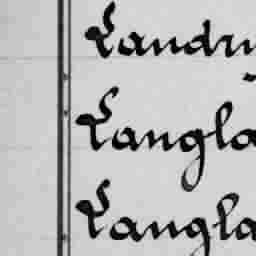 Landry
Langla
Langla